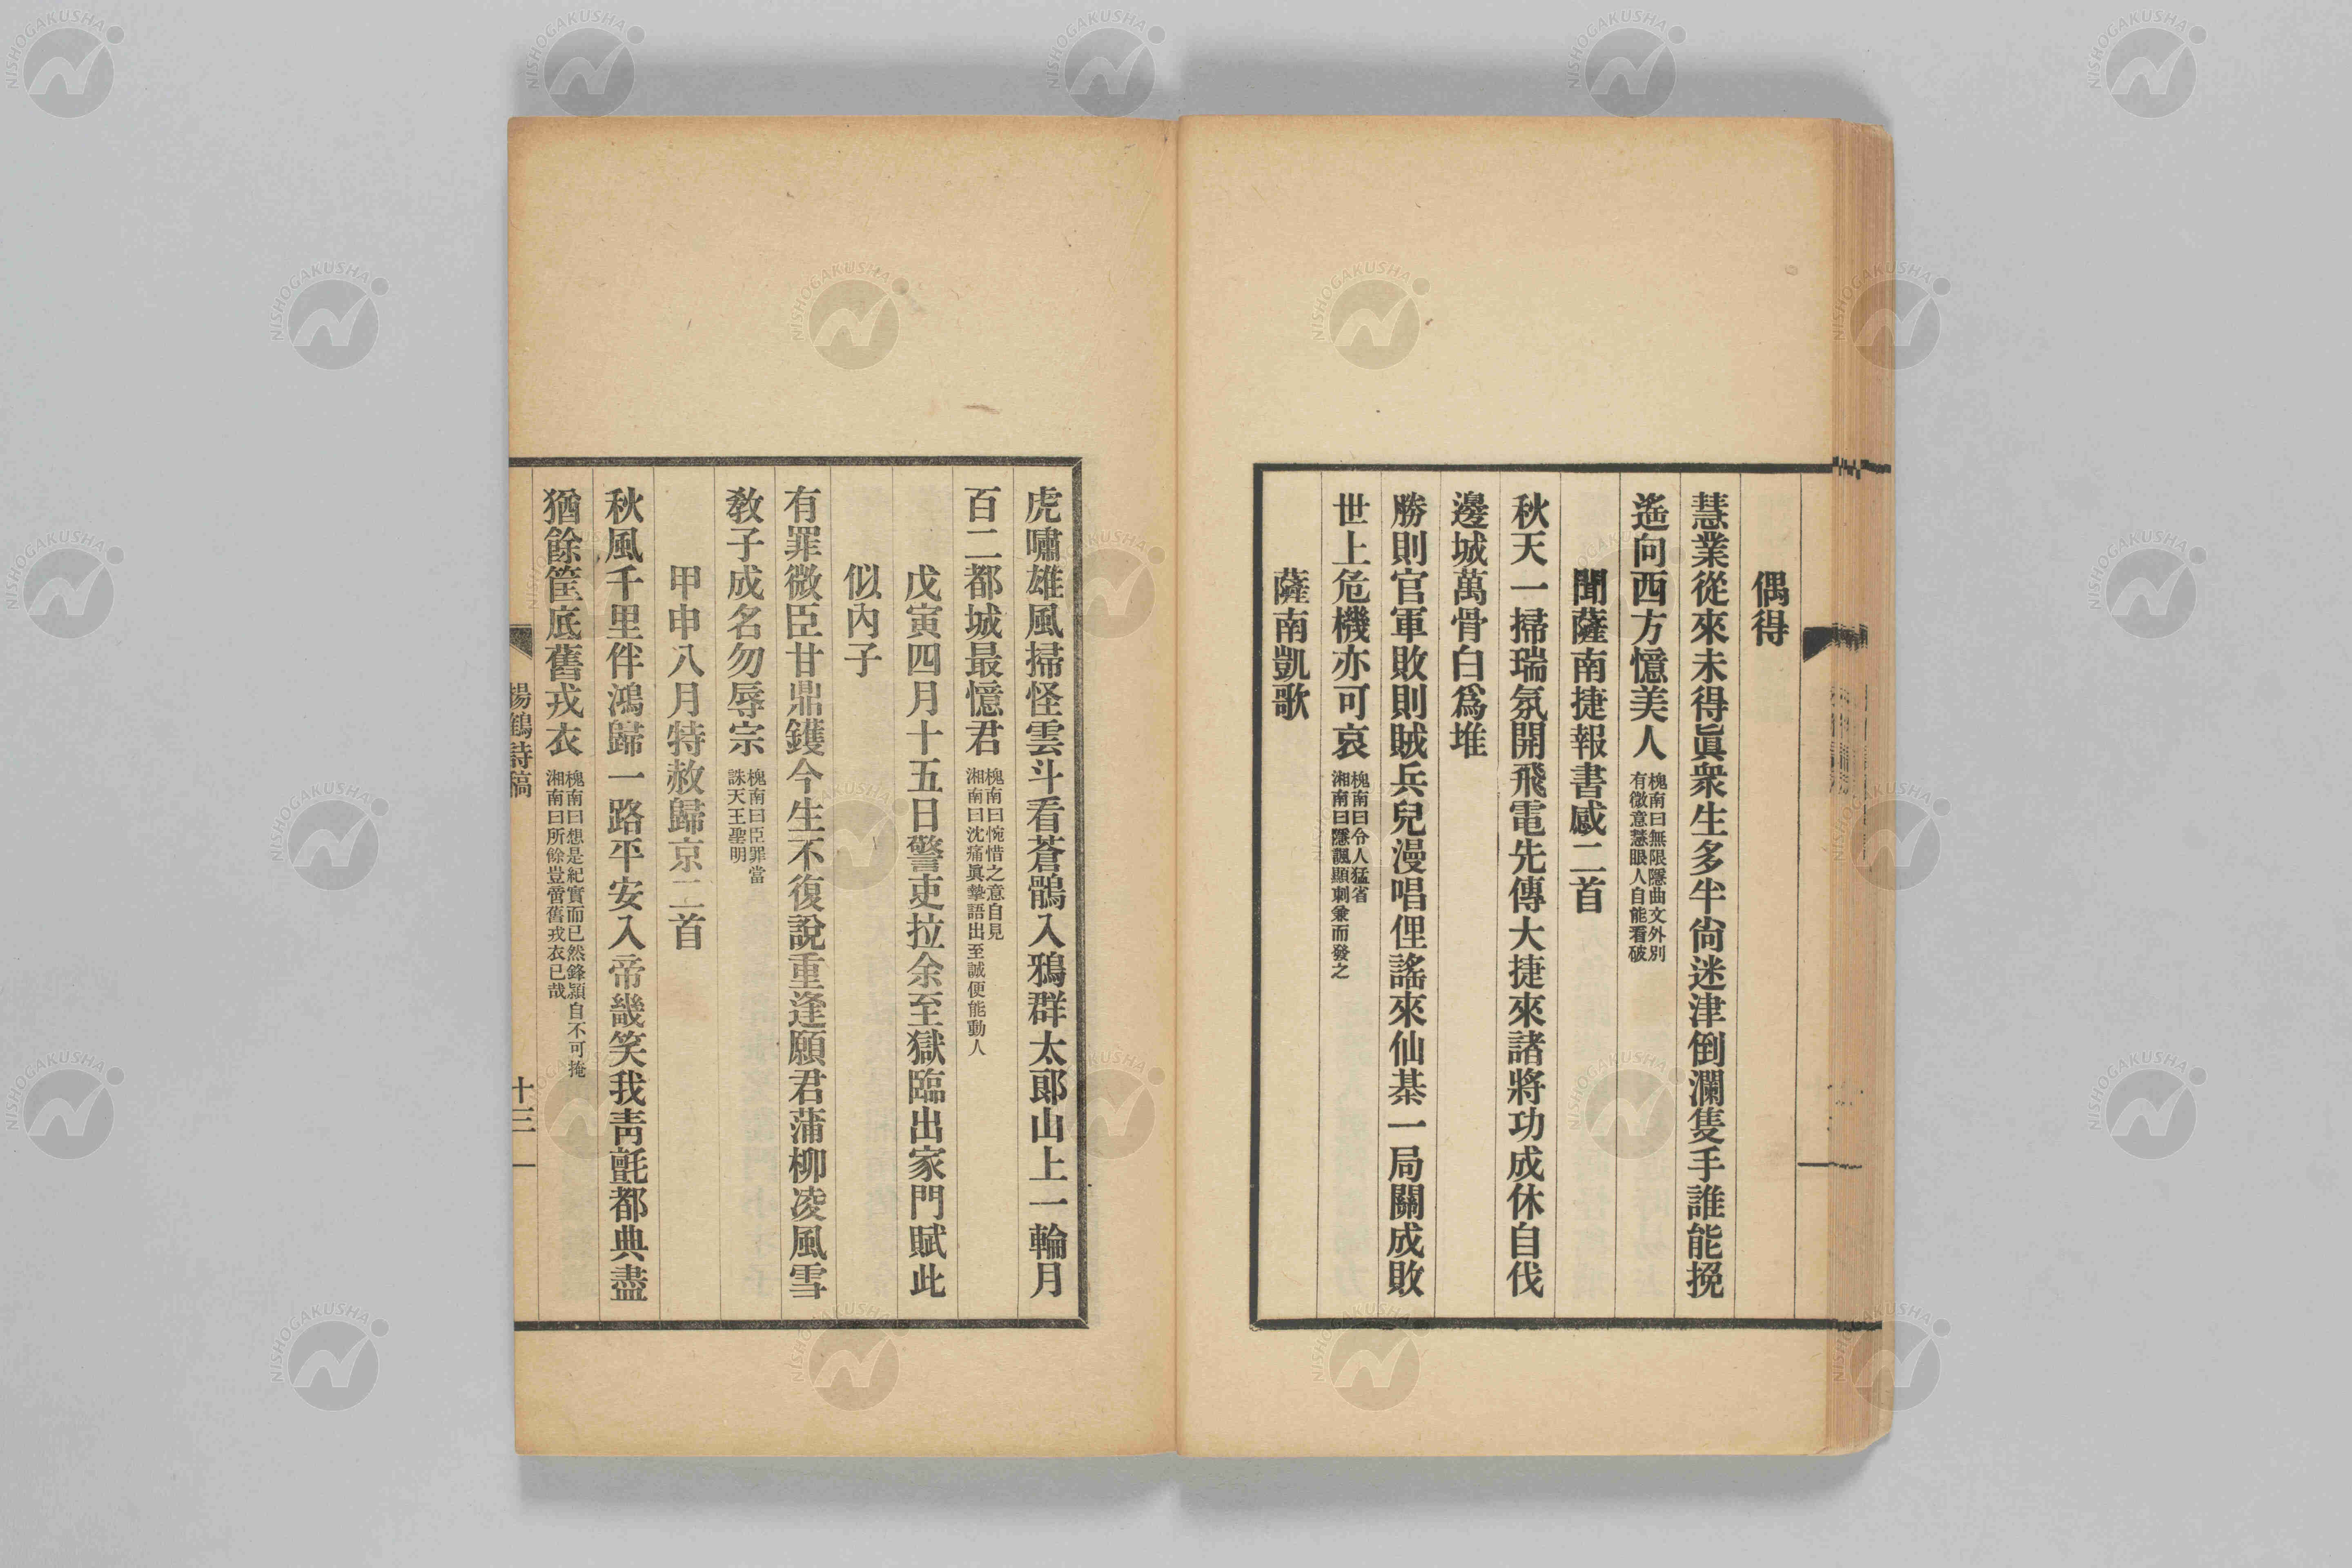 偶得
慧業從來未得眞衆生多半尙迷津倒瀾隻手誰能挽
遙向西方憶美人
槐南曰無限隱曲文外別
有微意慧眼人自能看破
聞薩南捷報書感二首
秋天一掃瑞氛開飛電先傳大捷來諸將功成休自伐
邊城萬骨白爲堆
勝則官軍敗則賊兵兒漫唱俚謠來仙棊一局關成敗
世上危機亦可哀
槐南曰令人猛省
湘南曰隱諷顯刺兼而發之
薩南凱歌
虎嘯雄風掃怪雲斗看蒼鶻入鴉群太郞山上一輪月
百二都城最憶君
槐南曰惋惜之意自見
湘南曰沈痛眞摯語出至誠便能動人
戊寅四月十五日警吏拉余至獄臨出家門賦此
似內子
有罪微臣甘鼎鑊今生不復說重逢願君蒲柳凌風雪
敎子成名勿辱宗
槐南曰臣罪當
誅天王聖明
甲申八月特赦歸京二首
秋風千里伴鴻歸一路平安入帝畿笑我靑氈都典盡
猶餘筐底舊戎衣
槐南曰想是紀實而已然鋒潁自不可掩
湘南曰所餘豈啻舊戎衣已哉
楊鶴詩稿
十三
NISHOGAKUSHA